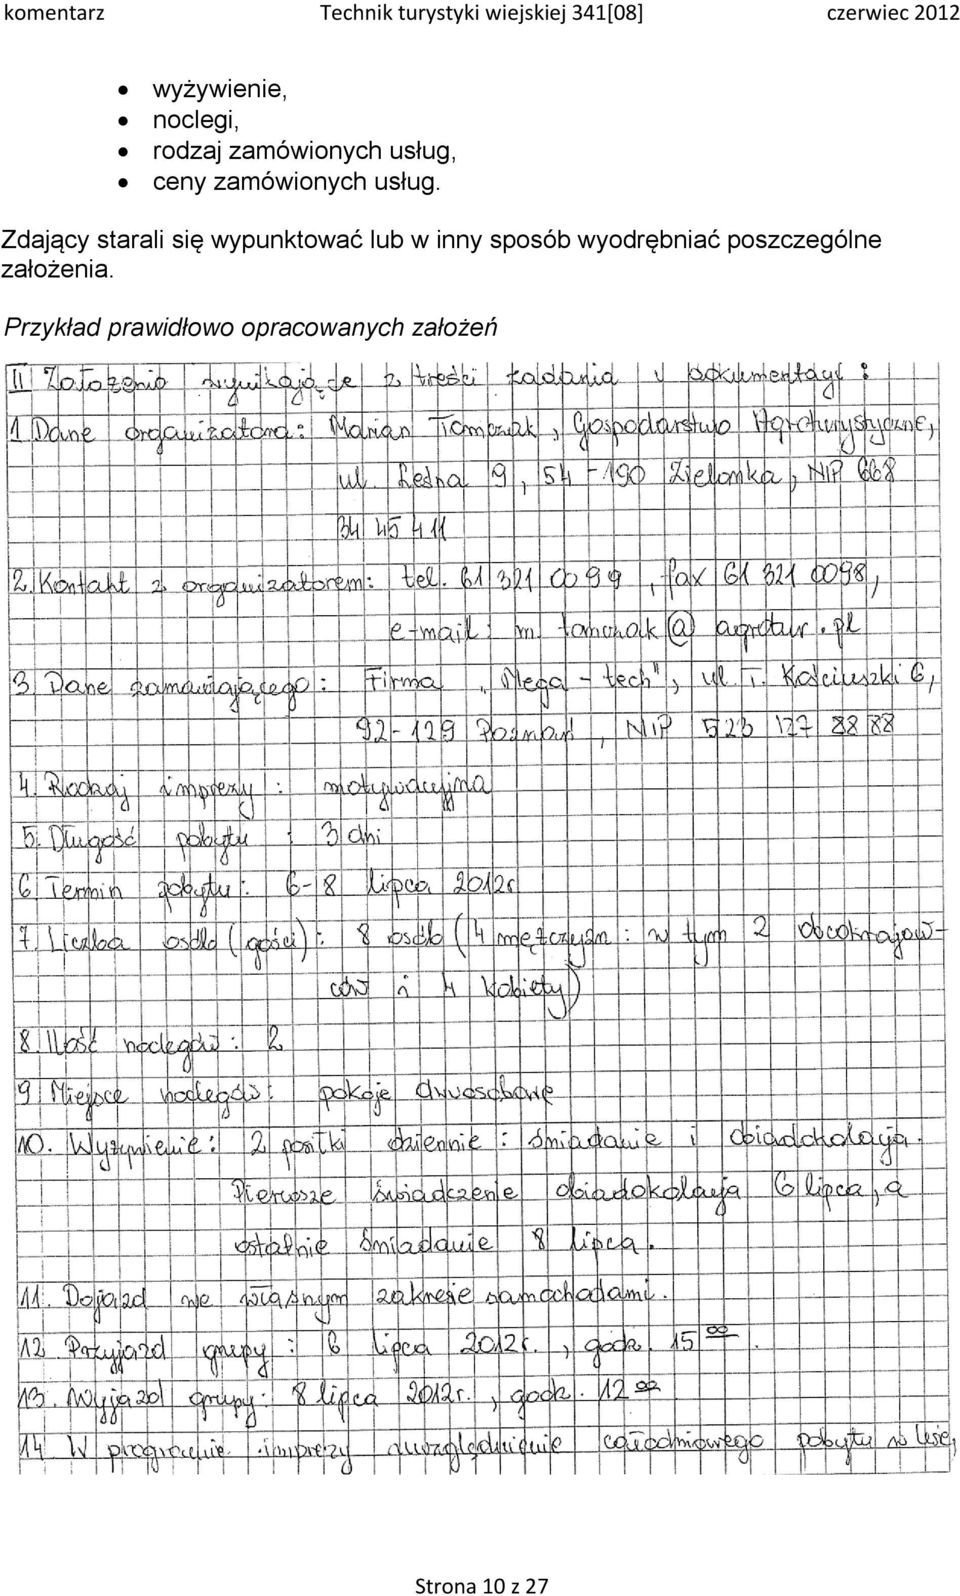 komentarz Technik turystyki wiejskiej 341[08] czerwiec 2012
• wyżywienie,
• noclegi,
• rodzaj zamówionych usług,
• ceny zamówionych usług.
Zdający starali się wypunktować lub w inny sposób wyodrębniać poszczególne
założenia.
Przykład prawidłowo opracowanych założeń
II Założenia wynikające z treści zadania i dokumentacji :
1 Dane organizatora: Marian Tomczak, Gospodarstwo Agroturystyczne,
ul. Leśna 9, 54-190 Zielonka, NIP 668
34 45 411
2. Kontakt z organizatorem: tel. 61 321 00 99, fax 61 321 0098,
e-mail: m.tomchak@agrotur.pl
3 Dane zamawiającego: Firma „Mega-tech", ul. T. Kościuszki 6,
92-129 Poznań, NIP 523 127 88 88
4. Rodzaj imprezy: motywacyjna
5. Długość pobytu : 3 dni
6 Termin pobytu: 6-8 lipca 2012r
7. Liczba osób (gości): 8 osób (4 mężczyzn: w tym 2 obcokrajow-
ców i 4 kobiety)
8. Ilość noclegów: 2
9 Miejsce noclegów: pokoje dwuosobowe
10. Wyżywienie: 2 posiłki dziennie: śniadanie i obiadokolacja.
Pierwsze świadczenie obiadokolacja 6 lipca, a
ostatnie śniadanie 8 lipca.
11. Dojazd we własnym zakresie samochodami.
12. Przyjazd grupy: 6 lipca 2012r., godz. 15 00.
13. Wyjazd grupy: 8 lipca 2012r., godz. 12 00
14. W programie imprezy uwzględnienie całodniowego pobytu w lesie,
Strona 10 z 27